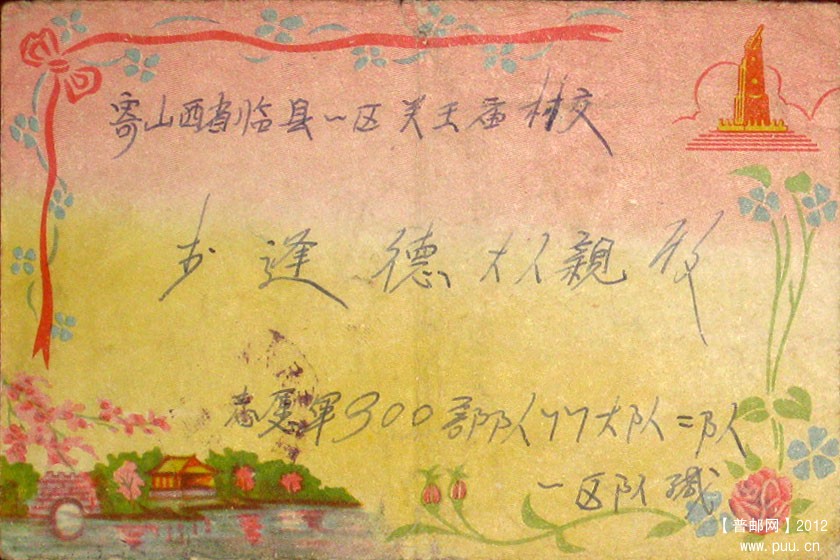 寄山西省临县一区关王庙村交
逢德大人親收
志愿軍300部队77大队二队
一区队缄
【普邮网】2012
www.puu.cn